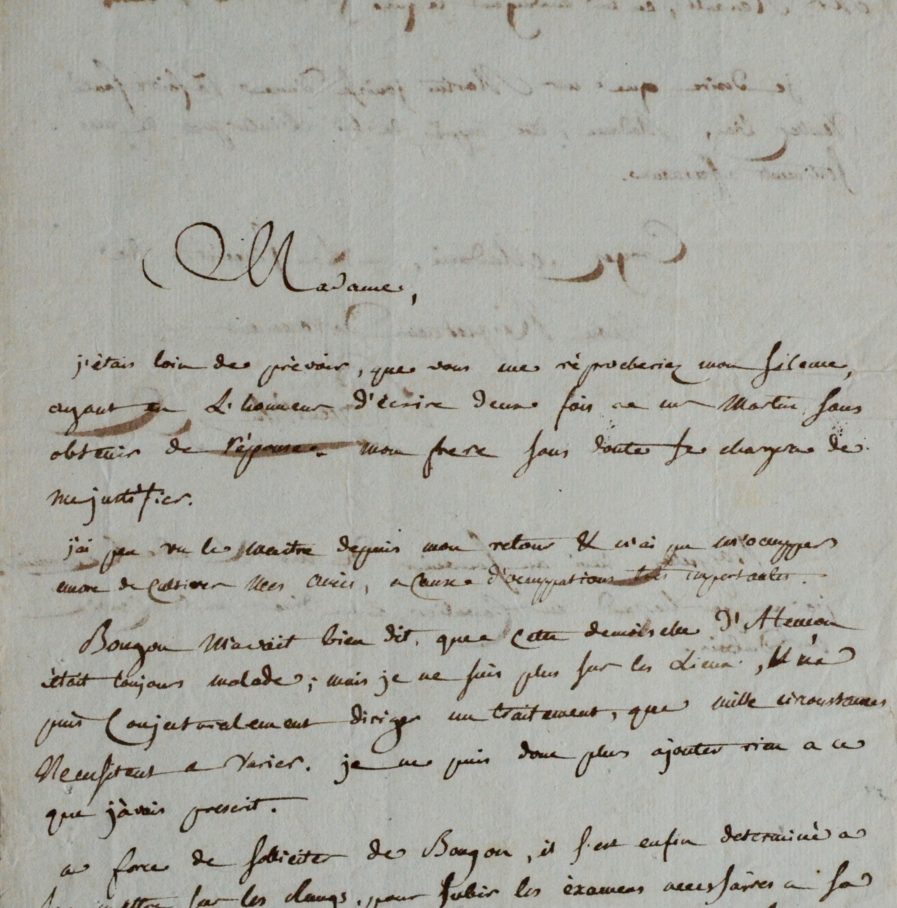 Madame,
j'étais loin de prévoir, que vous me réprocheriez mon silence,
ayant eu L'honneur d'écrire deux fois a mr Martin sans
obtenir de réponse. mon frere sans doute se chargera de
me justifier.
j'ai peu vu le maitre depuis mon retour & n'ai pu m'occupper
encore de cultiver mes amis, a cause d'occuppations très importantes.
Bougon m'avait bien dit, que cette demoiselle D'Alencon
était toujours malade; mais je ne suis plus sur les Lieux, & ne
puis Conjecturalement diriger un traitement, que mille circonstances
Necessitent a varier. je ne puis donc plus ajouter rien a ce
que j'avais prescrit.
a force de solliciter de Bougon, il s'est enfin determiné a
mettre sur les rangs, pour subir les éxamens necessaires a sa